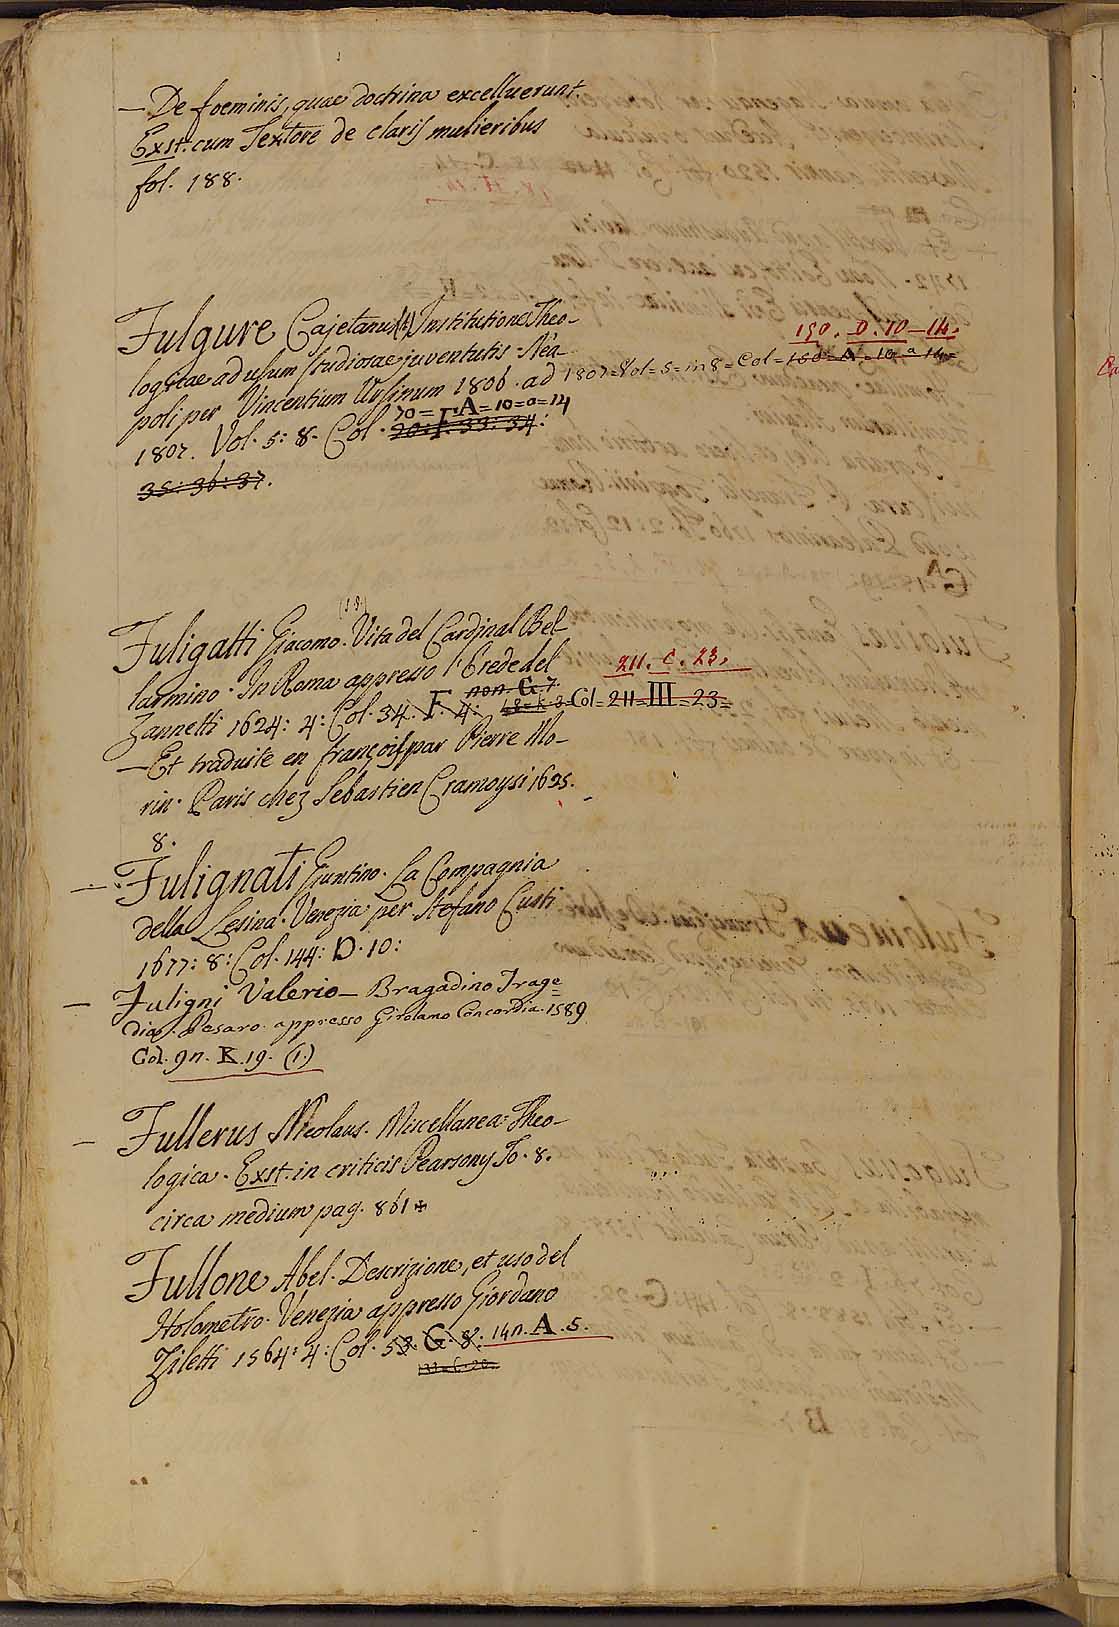 — De foeminis, quae doctrina excelluerunt.
Exst. cum Textore de claris mulieribus
fol. 188.
Fulgure Cajetanus Institutiones Theo-
logicae ad usum studiosae juventutis. Nea-
poli per Vincentium Ursinum 1806. ad 1807=Vol=5=in 8=Col=150=A=10=a 14=
150. D. 10-14.
70= A=10=a=14
1807. Vol. 5: 8. Col. 20: F. 33: 34:
35: 36: 37.
(18)
Fuligatti Giacomo. Vita del Cardinal Bel-
larmino. In Roma appresso l'Erede del
211. C. 23.
non. G. 7.
Zannetti 1624: 4: Col. 34. F. 4: Col=211=III=23=
— Et traduite en françois par Pierre Mo-
rin. Paris chez Sebastien Cramoysi 1625.
8.
— Fulignati Giuntino. La Compagnia
della Lesina. Venezia per Stefano Curti
1677: 8: Col. 144: D. 10:
— Fuligni Valerio — Bragadino Trage=
dia. Pesaro. appresso Girolamo Concordia. 1589
Col. 9n. K. 19. (1.)
— Fullerus Nicolaus. Miscellanea Theo-
logica. Exst. in criticis Pearsony To. 8.
circa medium pag. 861
Fullone Abel. Descrizione, et uso del
Holometro. Venezia appresso Giordano
Ziletti 1564: 4: Col. 53. G. 8: 14n. A. 5.